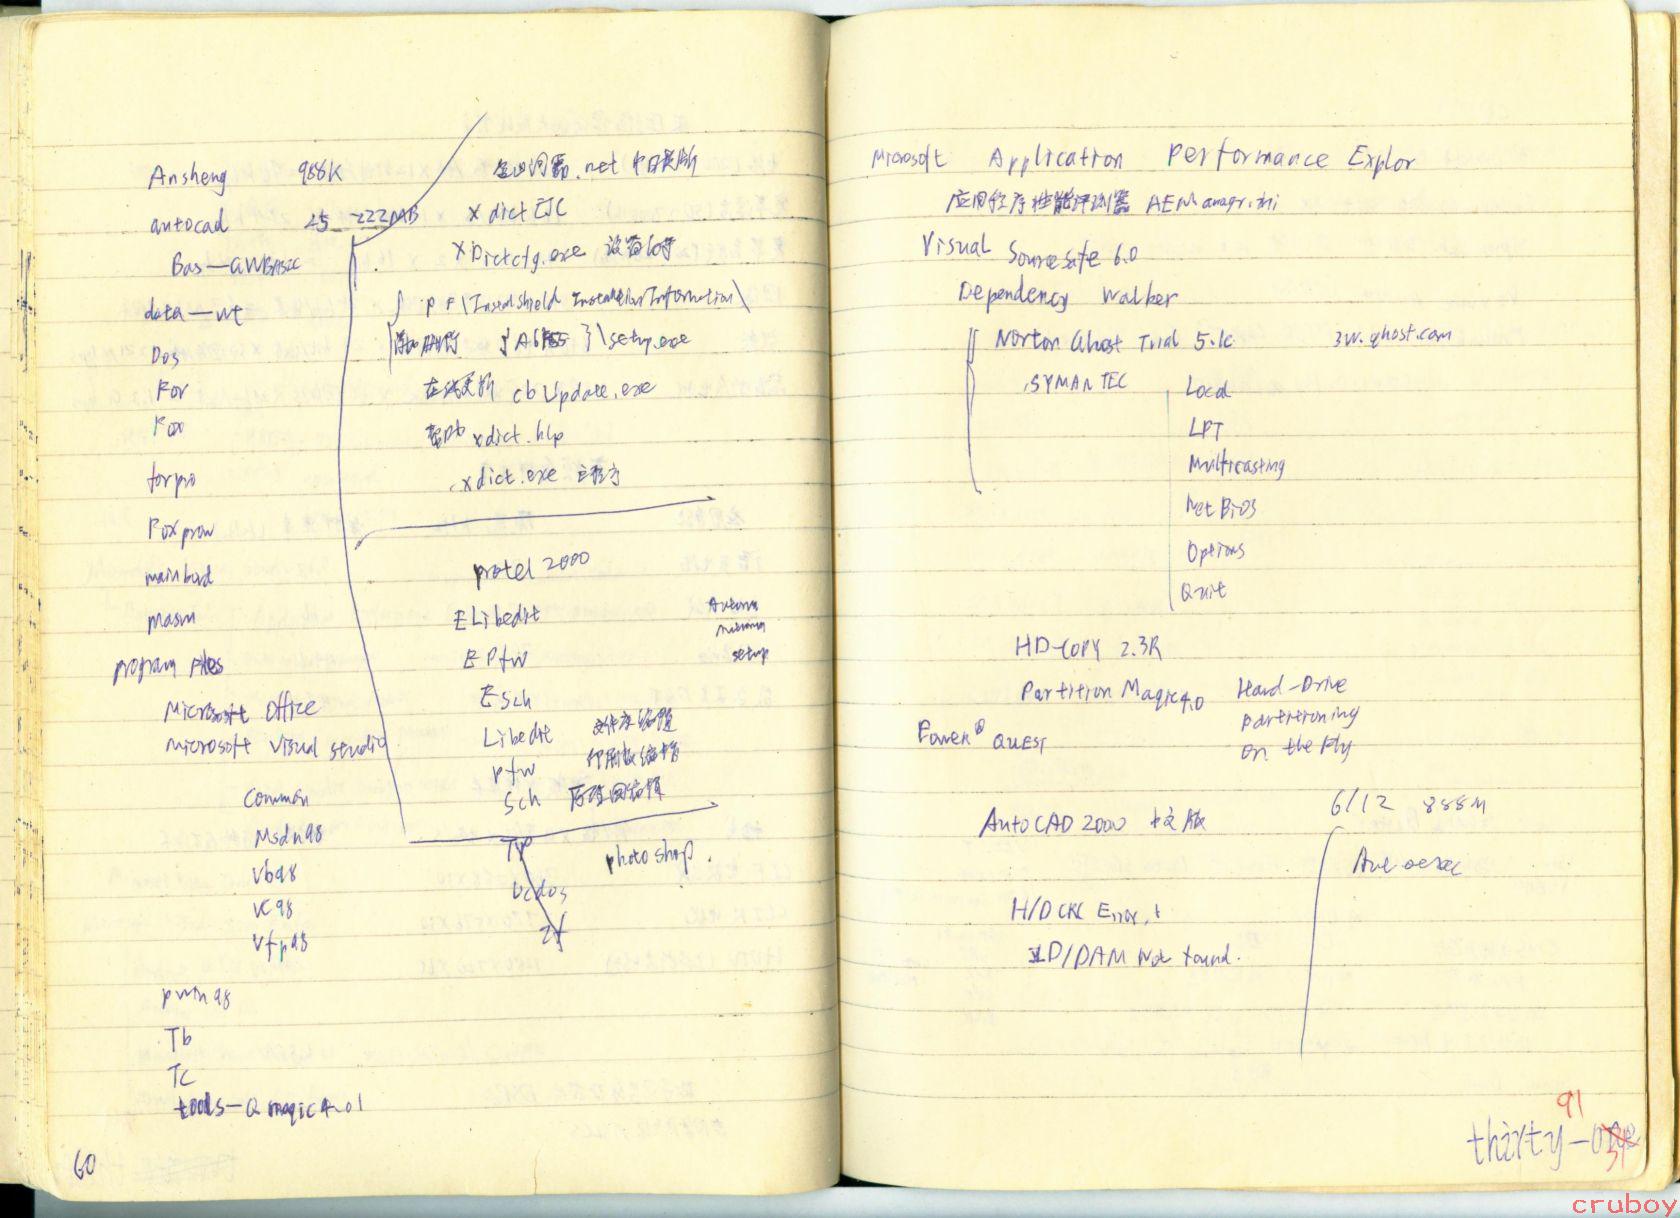 Ansheng 988K
autocad 25 222MB
Bas—GWBASIC
data—wt
Dos
For
Fox
forpro
Foxprow
mainbord
masm
program files
Microsoft Office
Microsoft Visual Studio
Common
Msdn98
Vb98
VC98
Vfp98
pwin98
Tb
Tc
tools—Qmagic4.01
金山词霸.net 中日更新
xdict EJC
XDictcfg.exe 设置
PF\InstallShield Installation Information\
添加删除 \setup.exe
在线更新 cbUpdate.exe
帮助 xdict.hlp
xdict.exe 主程序
protel 2000
ELibedit
EPfw
ESch
Libedit
pfw
Sch
Autorun
setup
TP photoshop.
Ucdos
Zf
60
Microsoft Application Performance Explor
应用程序性能评测器 AEManagr.
Visual SourceSafe 6.0
Dependency Walker
Norton Ghost Trial 5.1c 3w.ghost.com
SYMANTEC Local
LPT
Multicasting
NetBios
Options
Quit
HD-COPY 2.3R
Partition Magic4.0 Hard-Drive
partitioning
on the fly
Power® QUEST
6/12 888M
AutoCAD 2000 中文版
H/DCRC Error.
ID/DAM Not found.
91
thirty-one
31
cruboy